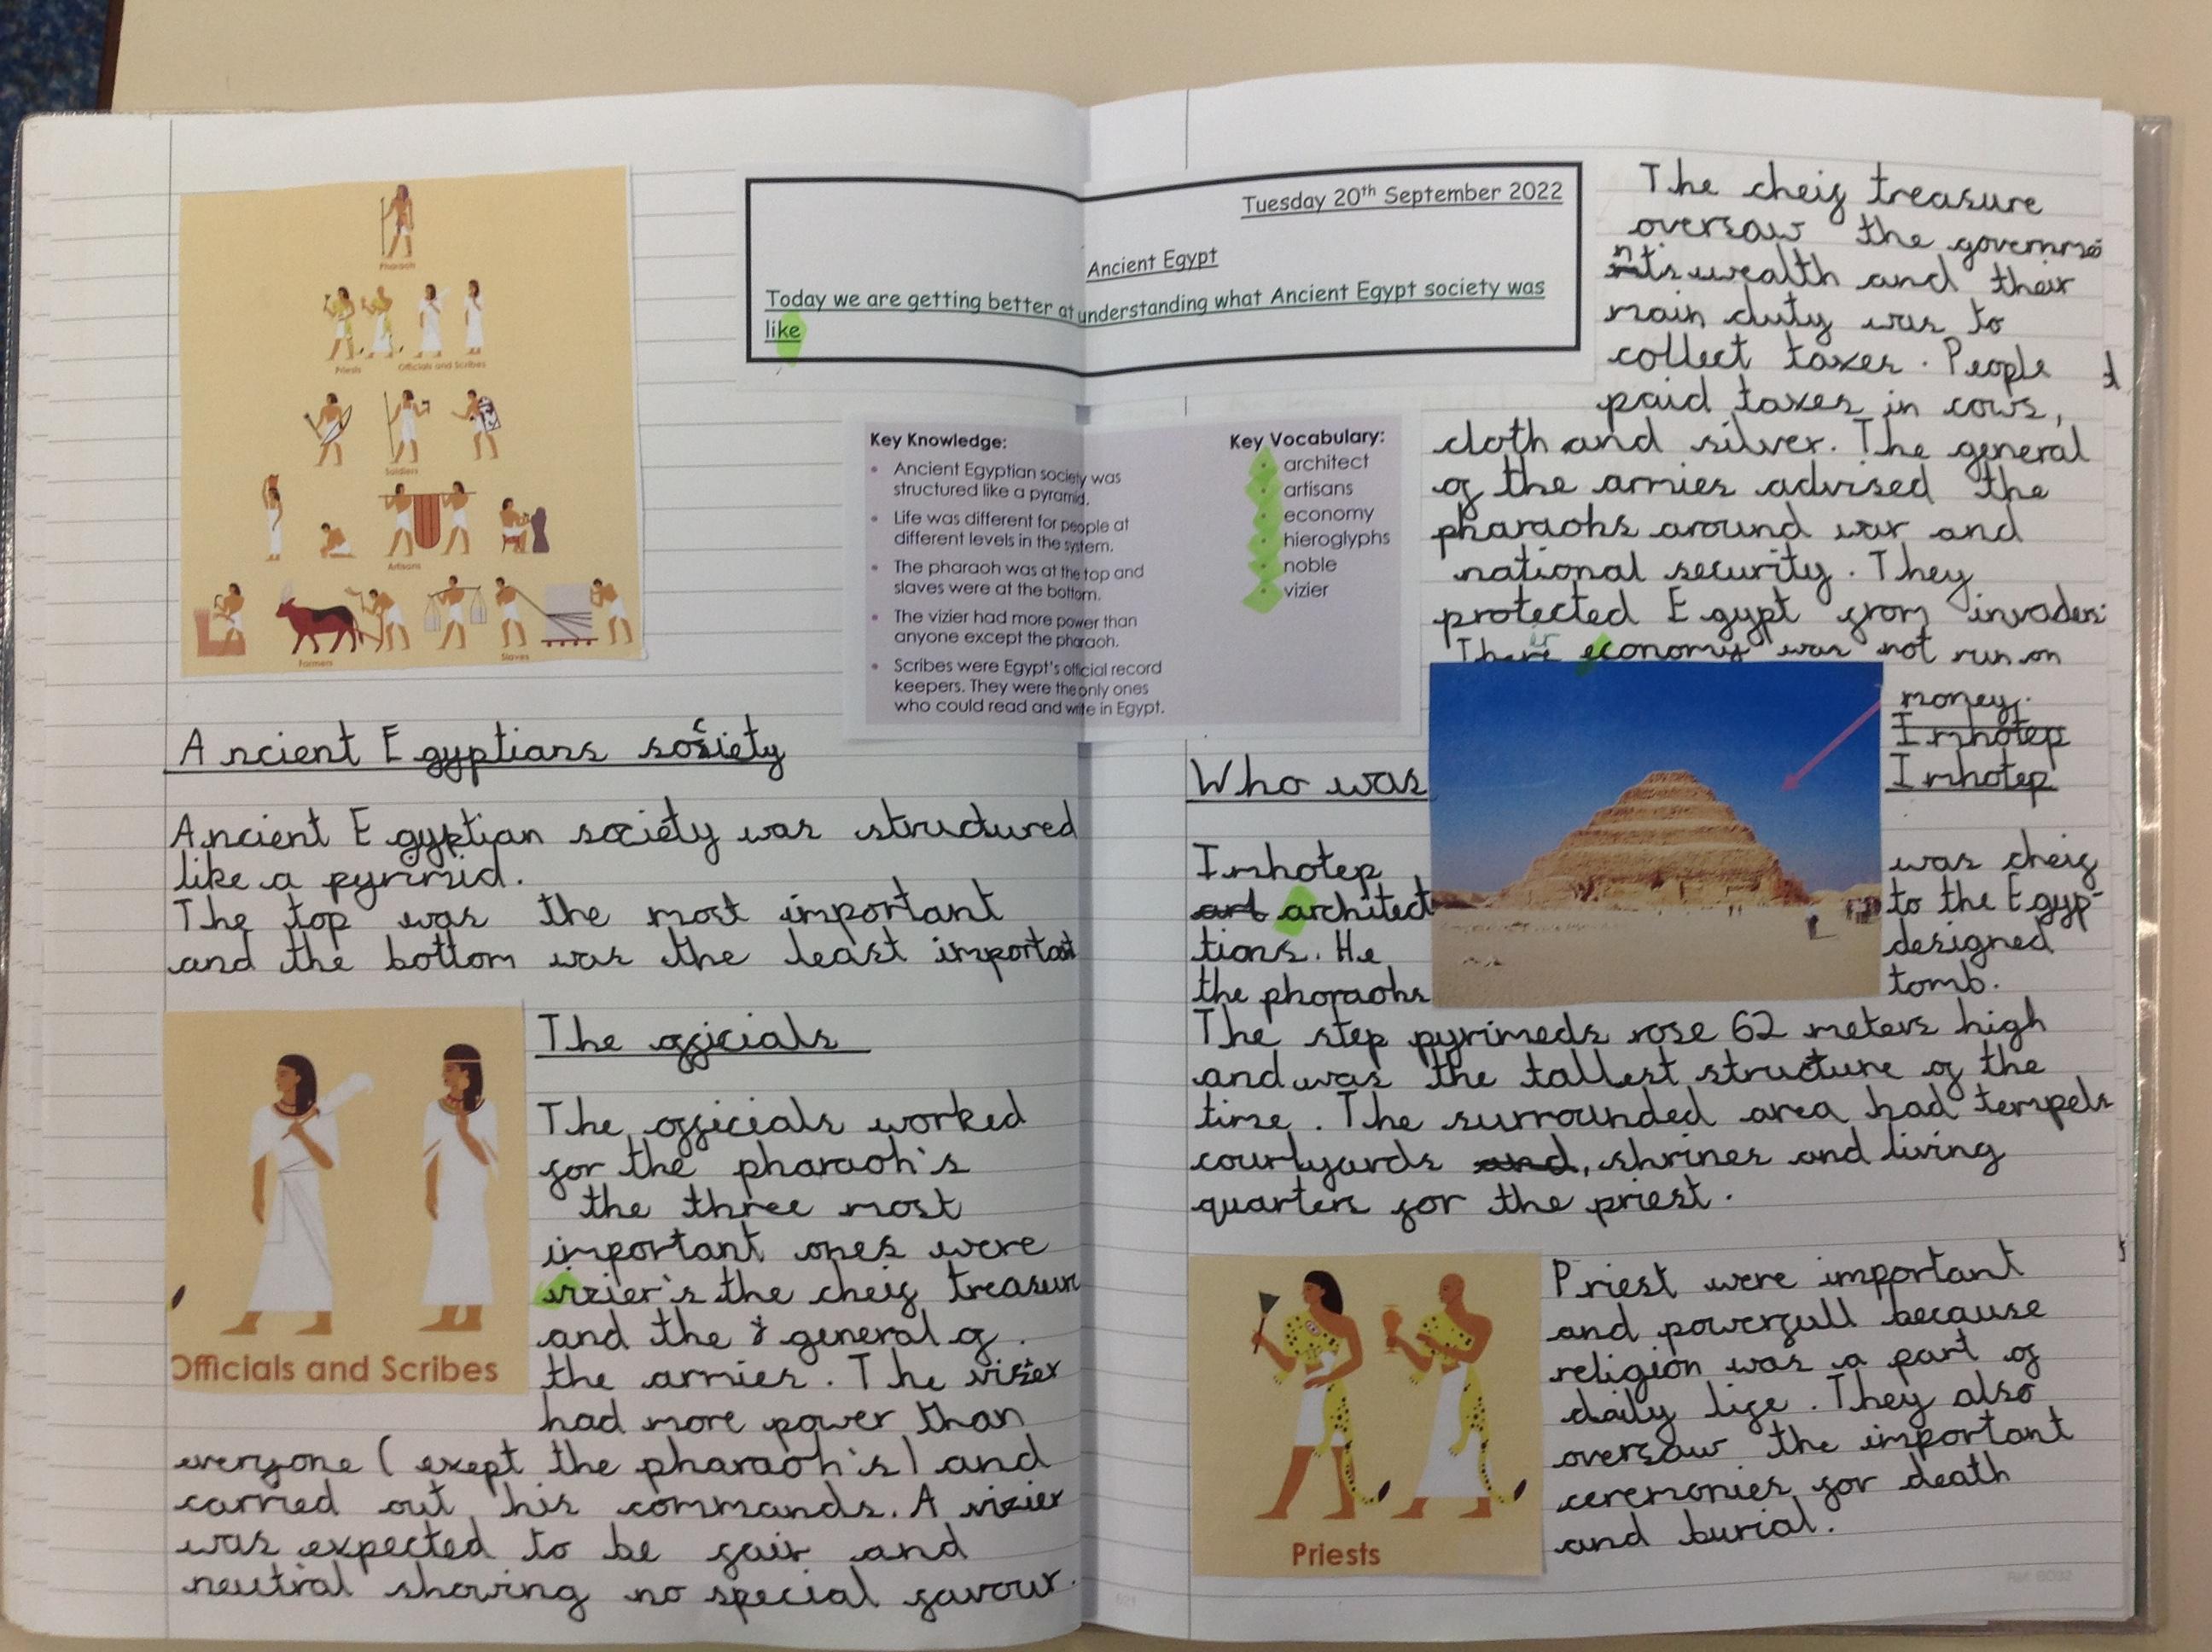 Pharaoh
Priests
Officials and Scribes
Soldiers
Artisans
Farmers
Slaves
Tuesday 20th September 2022
Ancient Egypt
Today we are getting better at understanding what Ancient Egypt society was
like
Key Knowledge:
• Ancient Egyptian society was
structured like a pyramid.
• Life was different for people at
different levels in the system.
• The pharaoh was at the top and
slaves were at the bottom.
• The vizier had more power than
anyone except the pharaoh.
• Scribes were Egypt's official record
keepers. They were the only ones
who could read and write in Egypt.
Key Vocabulary:
• architect
• artisans
• economy
• hieroglyphs
• noble
• vizier
Ancient Egyptians society
Ancient Egyptian society was structured
like a pyrimid.
The top was the most important
and the bottom was the least important
The officials
The officials worked
for the pharaoh's
the three most
important ones were
vizier's the cheif treasure
and the general of
the armies. The vizier
had more power than
everyone (exept the pharaoh's) and
carried out his commands. A vizier
was expected to be fair and
neutral showing no special favour.
Officials and Scribes
The cheif treasure
oversaw the governme
nt's wealth and their
main duty was to
collect taxes. People
paid taxes in cows,
cloth and silver. The general
of the armies advised the
pharaohs around war and
national security. They
protected Egypt from invaders
Their economy was not run on
money.
Imhotep
Who was Imhotep
Imhotep was cheif
art architect to the Egyp-
tions. He designed
the pharaohs tomb.
The step pyrimeds rose 62 meters high
and was the tallest structure of the
time. The surrounded area had tempels
courtyards and, shrines and living
quarters for the priest.
Priests
Priest were important
and powerfull because
religion was a part of
daily life. They also
oversaw the important
ceremonies for death
and burial.